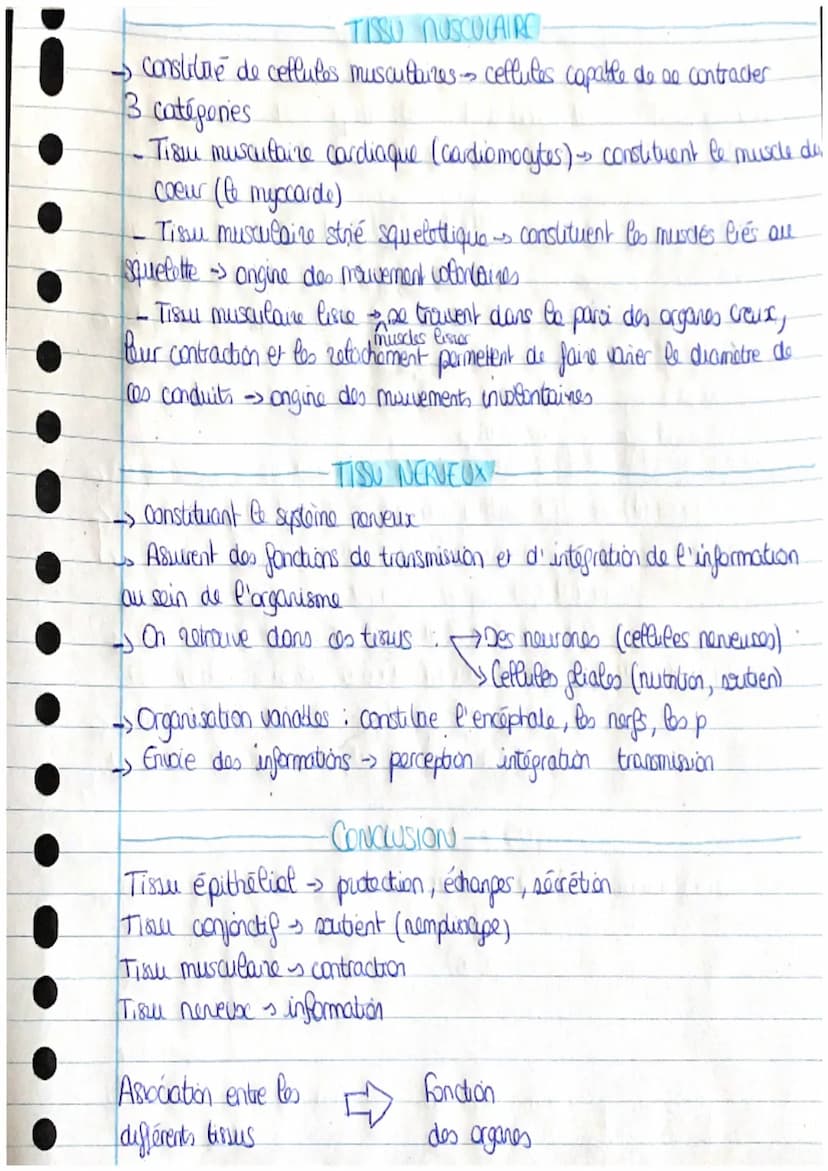 TISSU MUSCULAIRE
→ Constitué de cellules musculaires → cellules capable de se contracter
3 catégories
- Tissu musculaire cardiaque (cardiomocytes) → constituent le muscle du
coeur (le myocarde)
- Tissu musculaire strié squelettique → constituent les muscles liés au
squelette → origine des mouvement volontaires
- Tissu musculaire lisse → se trouvent dans la paroi des organes creux,
muscles lisses
leur contraction et les relachement permettent de faire varier le diamètre de
ces conduits → origine des mouvements involontaires
TISSU NERVEUX
→ Constituant le système nerveux
→ Assurent des fonctions de transmission et d'intégration de l'information
au sein de l'organisme
→ On retrouve dans ces tissus : → Des neurones (cellules nerveuses)
→ Cellules gliales (nutrition, soutien)
→ Organisation variables : constitue l'encéphale, les nerfs, les p
→ Envoie des informations → perception intégration transmission
CONCLUSION
Tissu épithélial → protection, échanges, sécrétion
Tissu conjonctif → soutient (remplissage)
Tissu musculaire → contraction
Tissu nerveux → information
Association entre les ⇒ Fonction
différents tissus des organes